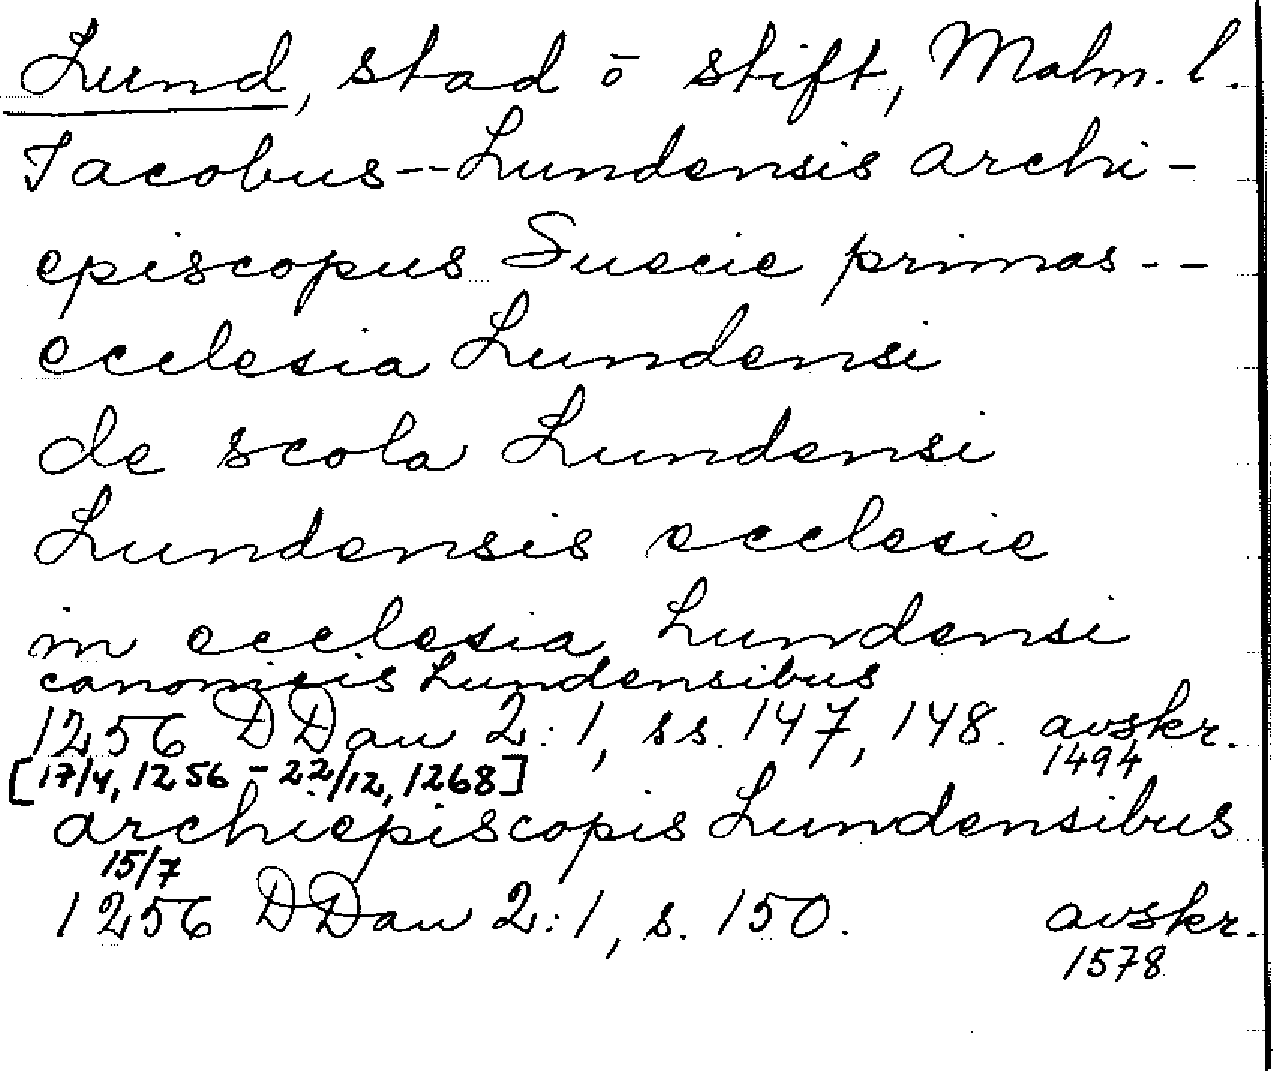 Lund, stad o stift, Malm. l.
Jacobus--Lundensis archi-
episcopus Suecie primas--
ecclesia Lundensi
de scola Lundensi
Lundensis ecclesie
in ecclesia Lundensi
canonicis Lundensibus
1256 DDan 2:1, ss. 147, 148. avskr.
1494
[17/4, 1256 - 22/12, 1268]
archiepiscopis Lundensibus
15/7
1256 DDan 2:1, s. 150. avskr.
1578